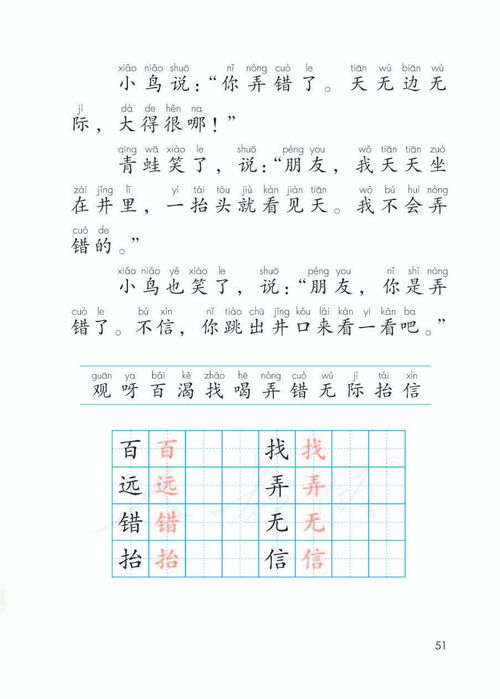 xiǎo niǎo shuō nǐ nòng cuò le tiān wú biān wú
小鸟说：“你弄错了。天无边无
jì dà de hěn na
际，大得很哪！”
qīng wā xiào le shuō péng you wǒ tiān tiān zuò
青蛙笑了，说：“朋友，我天天坐
zài jǐng lǐ yì tái tóu jiù kàn jiàn tiān wǒ bú huì nòng
在井里，一抬头就看见天。我不会弄
cuò de
错的。”
xiǎo niǎo yě xiào le shuō péng you nǐ shì nòng
小鸟也笑了，说：“朋友，你是弄
cuò le bú xìn nǐ tiào chū jǐng kǒu lái kàn yi kàn ba
错了。不信，你跳出井口来看一看吧。”
guān ya bǎi kě zhǎo hē nòng cuò wú jì tái xìn
观呀百渴找喝弄错无际抬信
百 百 找 找
远 远 弄 弄
错 错 无 无
抬 抬 信 信
51